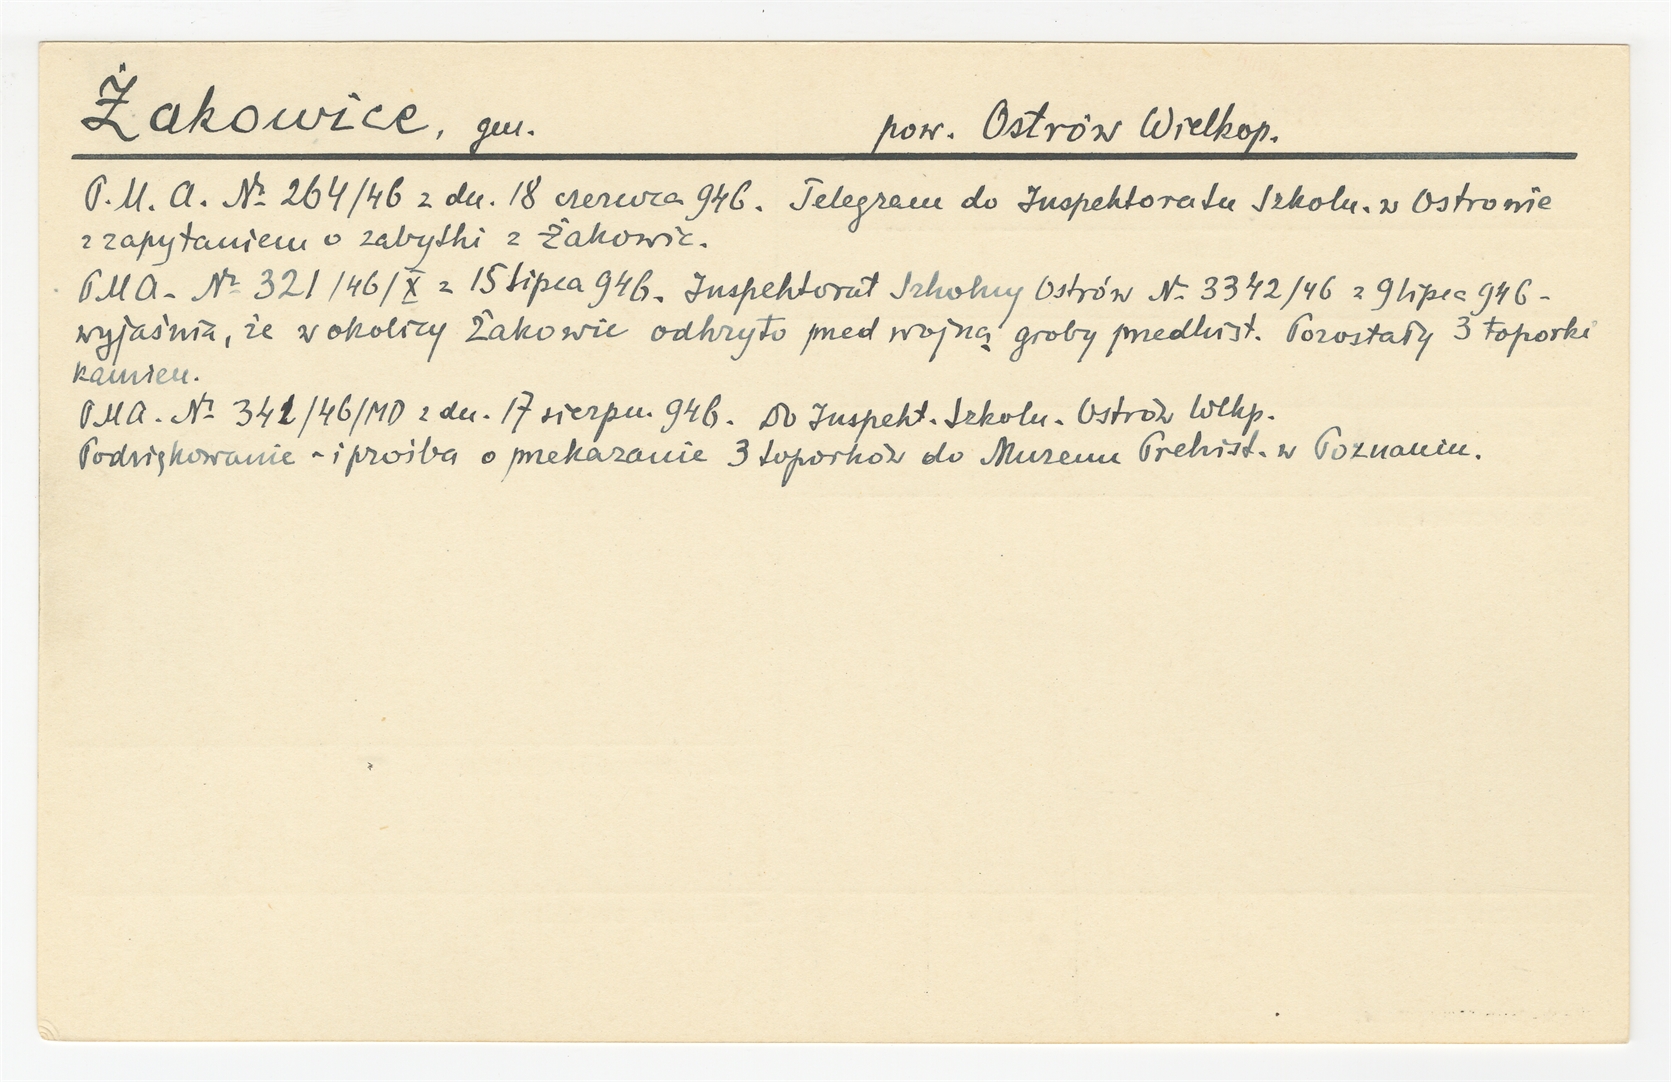 Żakowice, gm. pow. Ostrów Wielkop.
P.M.A. Nr 264/46 z dn. 18 czerwca 946. Telegram do Inspektoratu Szkoln. w Ostrowie
z zapytaniem o zabytki z Żakowic.
PMA. Nr 321/46/X z 15 lipca 946. Inspektorat Szkolny Ostrów Nr 3342/46 z 9 lipca 946 -
wyjaśnia, że w okolicy Żakowic odkryto przed wojną groby przedhist. Pozostały 3 toporki
kamien.
PMA. Nr 341/46/MD z dn. 17 sierpn. 946. Do Inspekt. Szkoln. Ostrów Wlkp.
Podziękowanie - i prośba o przekazanie 3 toporków do Muzeum Prehist. w Poznaniu.